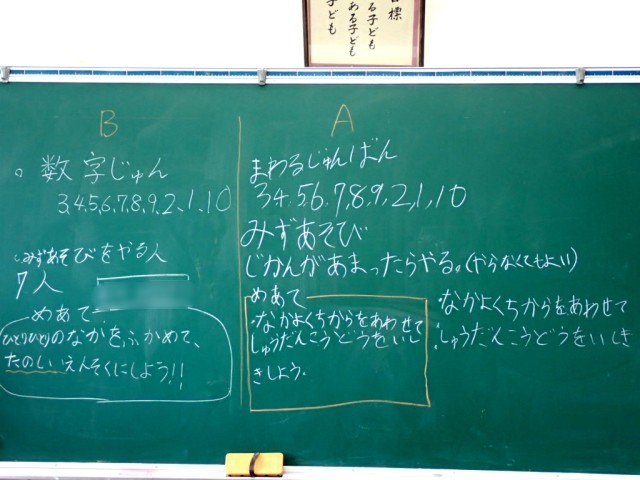 標
る子ども
ある子ども
子ども
B
。数字じゅん
3,4,5,6,7,8,9,2、1、10
・みずあそびをやる人
7人
めあて
ひとりひとりのなかをふかめて、
たのしいえんそくにしよう!!
A
まわるじゅんばん
3,4,5,6,7,8,9,2,1,10
みずあそび
じかんがあまったらやる。(やらなくてもよい)
めあて
・なかよくちからをあわせて
しゅうだんこうどうをいし
きしよう.
・なかよくちからをあわせて
・しゅうだんこうどうをいしき